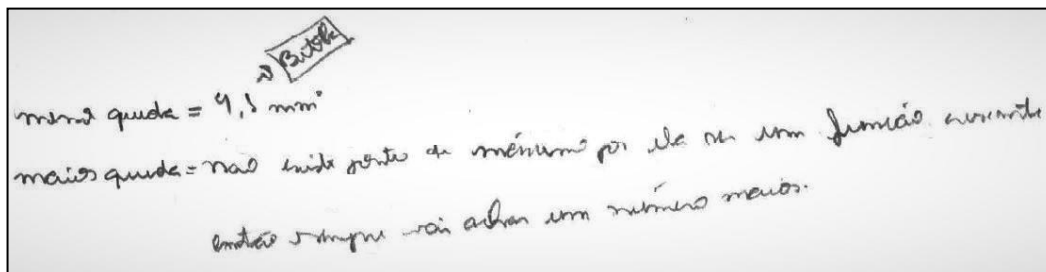 Bitola
menor queda = 4,5 mm²
maior queda = não existe ponto de máximo por ela ser um função crescente
então sempre vai achar um número maior.